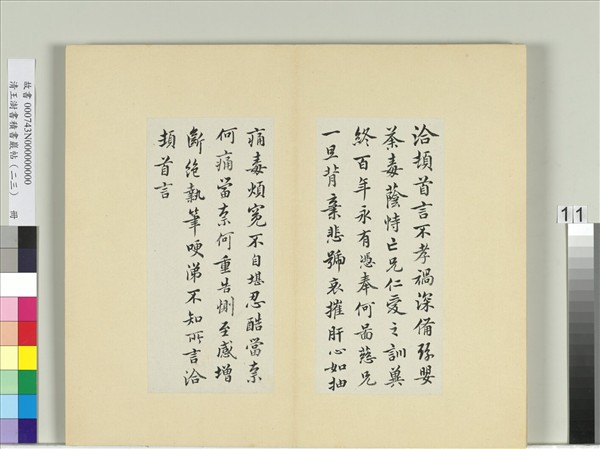 洽頓首言不孝禍深備豫嬰
荼毒蔭恃亡兄仁愛之訓冀
終百年永有憑奉何啚慈兄
一旦背棄悲號哀摧肝心如抽
痛毒煩冤不自堪忍酷當奈
何痛當奈何重告惻至感增
斷絕執筆哽涕不知所言洽
頓首言
故書 000743N000000000
清王澍書積書巖帖(二三) 冊
11